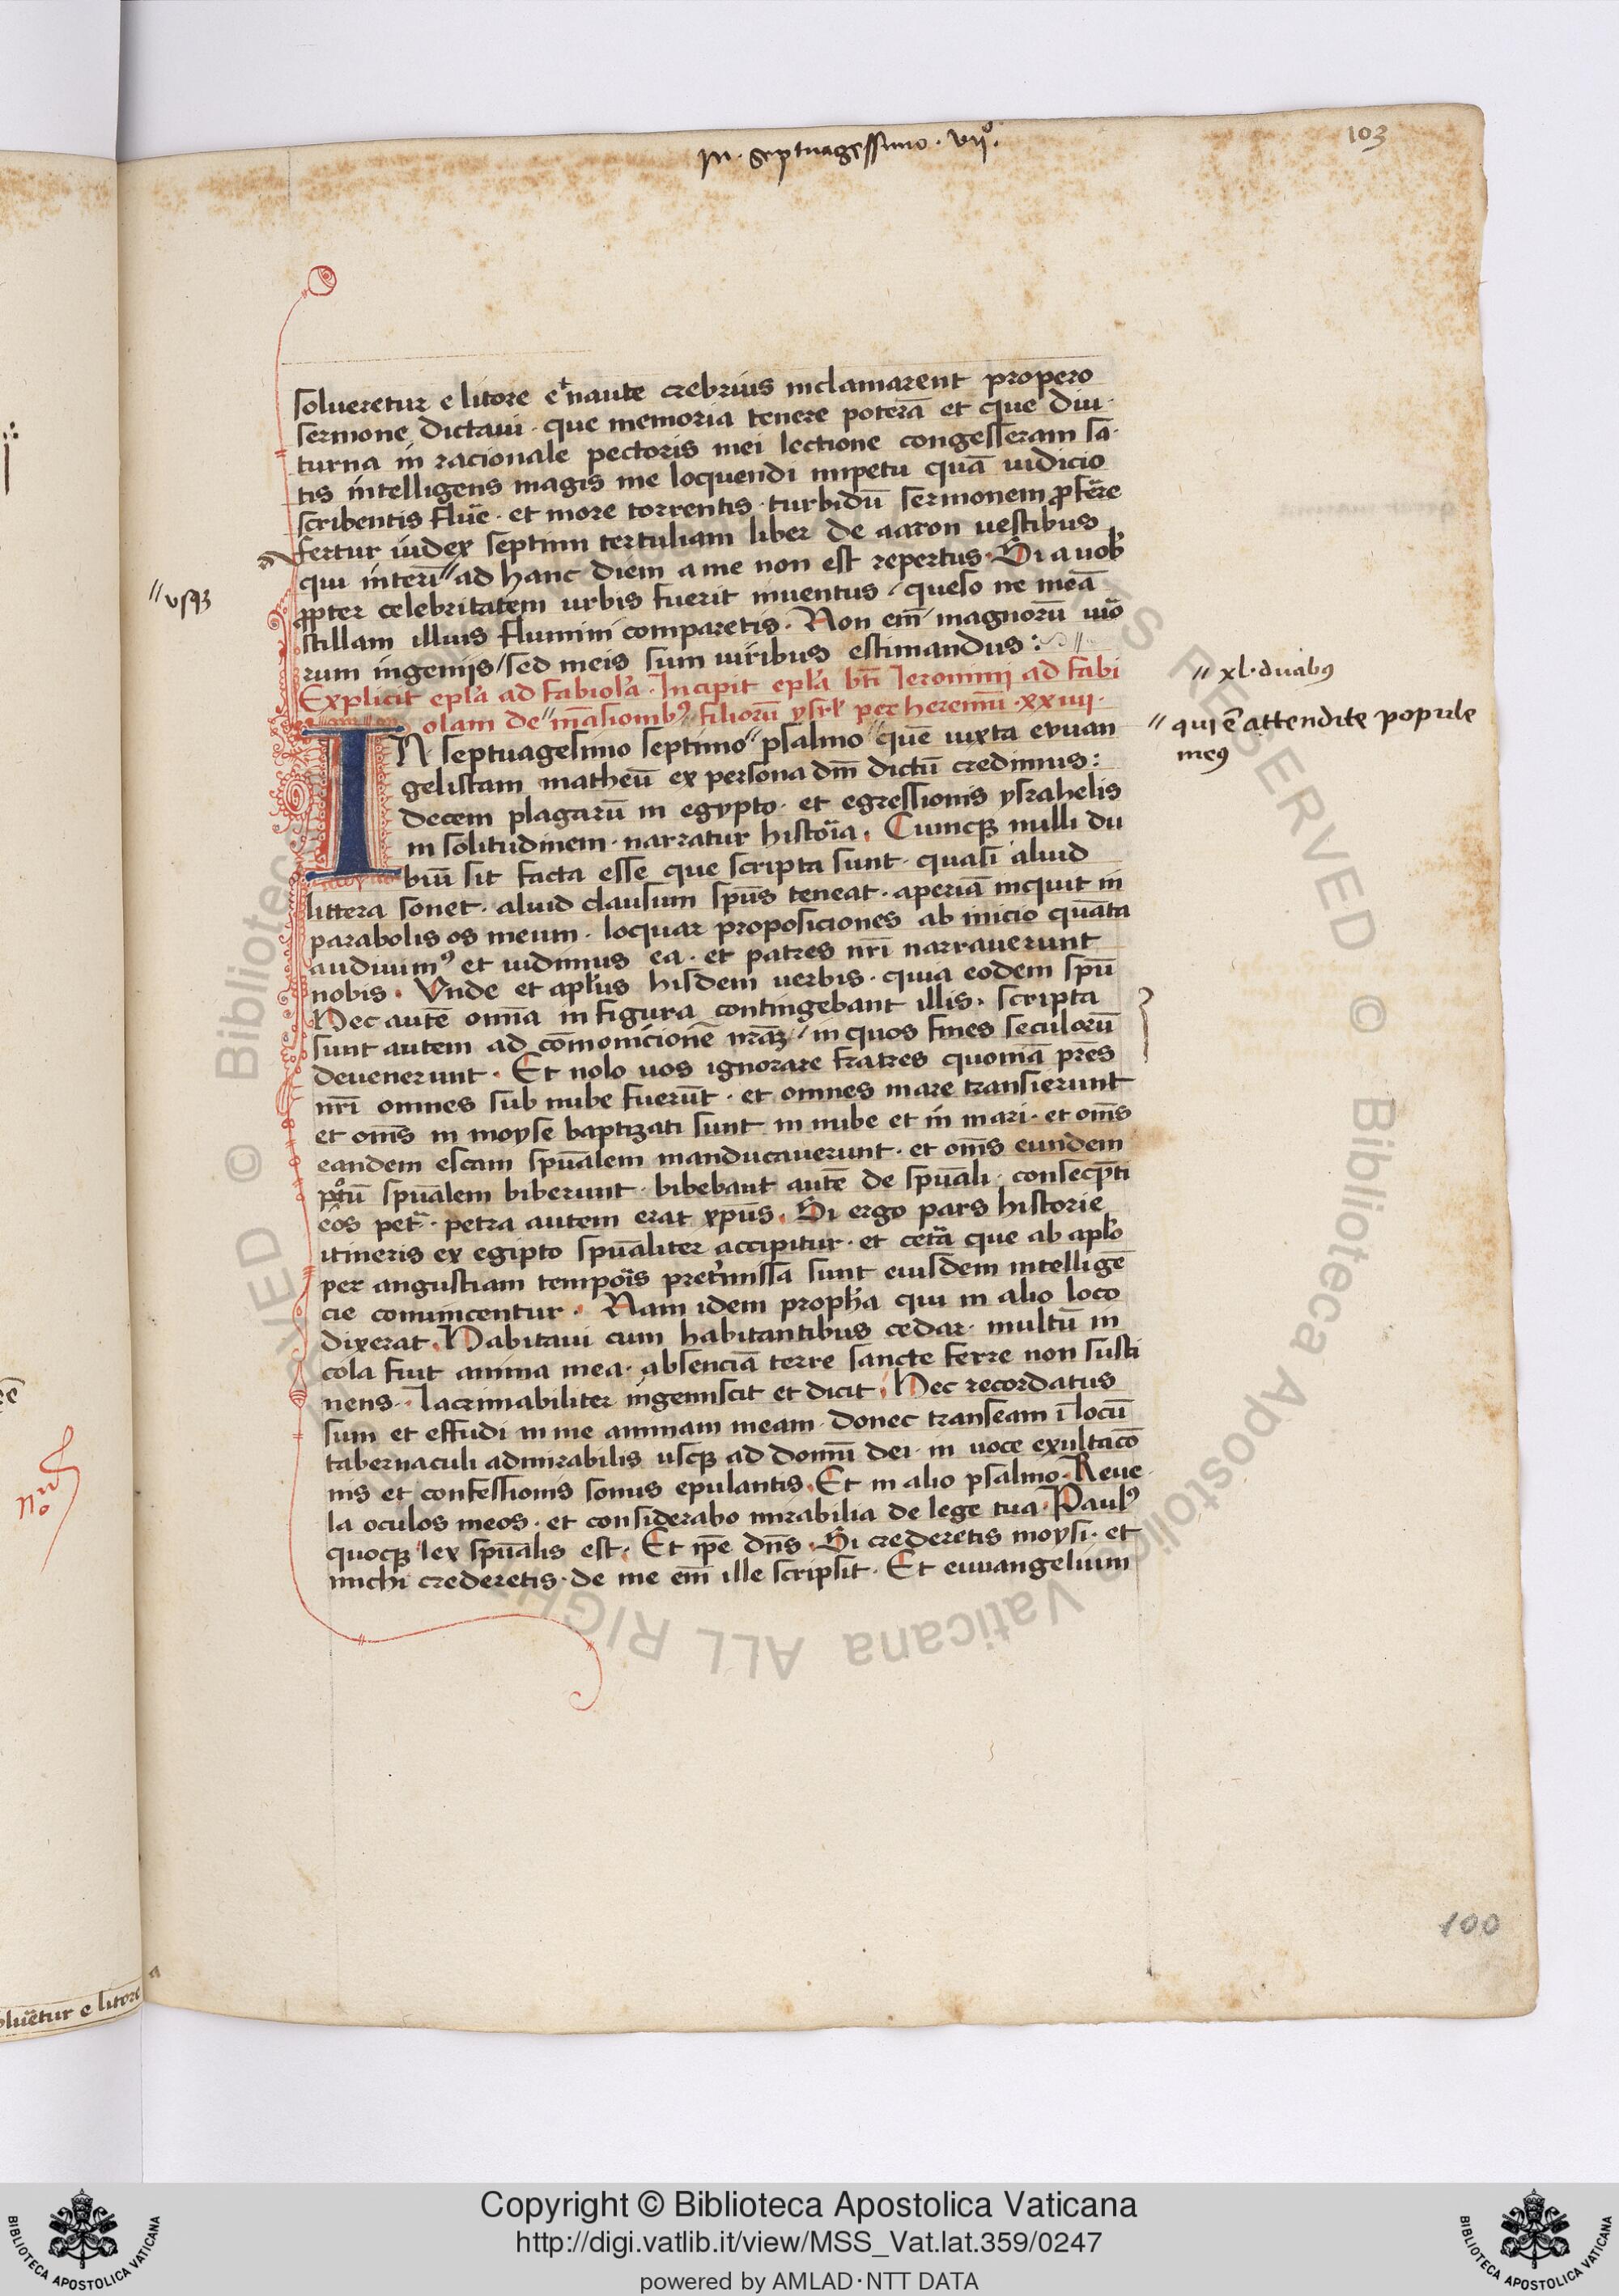 In septuagessimo . vijº.
103
solueretur e litore et naute crebrius inclamarent propero
sermone dictaui . que memoria tenere poterā et que diu
turna in racionale pectoris mei lectione congesseram sa
tis intelligens magis me loquendi impetu quā iudicio
scribentis fluē . et more torrentis . turbidū sermonem ꝓferre
fertur iudex septimi tertuliani liber de aaron uestibus
qui interī〃ad hanc diem a me non est repertus . Si a uob̄
〃usqꝫ
ꝓpter celebritatem urbis fuerit inuentus / queso ne meā
stillam illius flumini comparetis . Non em̄ magnorū uiro
rum ingenijs / sed meis sum uiribus estimandus :
Explicit epl̄a ad fabiolā . Incipit epl̄a bt̄i Ieronimi ad fabi
〃 xl . duabꝰ
olam de〃māsionibꝰ〃filiorū ysrl̄ per heremū . xxiiii .
IN septuagesimo septimo〃psalmo〃quē iuxta euuan
〃 qui ē attendite popule
meꝰ
gelistam matheū ex persona dn̄i dictū credimus :
decem plagarū in egypto . et egressionis ysrahelis
in solitudinem . narratur histoïa . Cumqꝫ nulli du
biū sit facta esse que scripta sunt . quasi aliud
littera sonet . aliud clausum sp̄us teneat . aperiā inquit in
parabolis os meum . loquar proposiciones ab inicio quāta
audiuimꝰ et uidimus ea . et patres nr̄i narrauerunt
nobis . Vnde et apl̄us hisdem uerbis . quia eodem sp̄u
Hec autē omīa in figura contingebant illis . scripta
sunt autem ad cōmonicionē nrāꝫ / in quos fines seculorū
deuenerunt . Et nolo uos ignorare fratres quoniā pr̄es
nr̄i omnes sub nube fuerūt . et omnes mare transierunt
et om̄s in moyse baptizati sunt in nube et in mari . et om̄s
eandem escam spūalem manducauerunt . et om̄s eundem
potū spūalem biberunt . bibebant autē de spūali . conseqn̄ti
eos petra . petra autem erat xp̄us . Si ergo pars historie
itineris ex egipto spūaliter accipitur . et cetā que ab apl̄o
per angustiam tempoïs pretermissa sunt eiusdem intelligē
cie conuincentur . Nam idem proph̄a qui in alio loco
dixerat . Habitaui cum habitantibus cedar . multū in
cola fuit anima mea . absenciā terre sancte ferre non susti
nens . lacrimabiliter ingemiscit et dicit . Hec recordatus
sum et effudi in me animam meam . donec transeam ī locū
tabernaculi admirabilis usqꝫ ad domū dei . in uoce exultacō
nis et confessionis sonus epulantis . Et in alio psalmo . Reue
la oculos meos . et considerabo mirabilia de lege tua . Paulꝰ
quoqꝫ lex spūalis est . Et ip̄e dn̄s . Si crederetis moysi . et
michi crederetis . de me em̄ ille scripsit . Et euuangelium
100
oluētur e litore
© Biblioteca Apostolica Vaticana ALL RIGHTS RESERVED
Copyright © Biblioteca Apostolica Vaticana
http://digi.vatlib.it/view/MSS_Vat.lat.359/0247
powered by AMLAD·NTT DATA
BIBLIOTECA APOSTOLICA VATICANA
BIBLIOTECA APOSTOLICA VATICANA